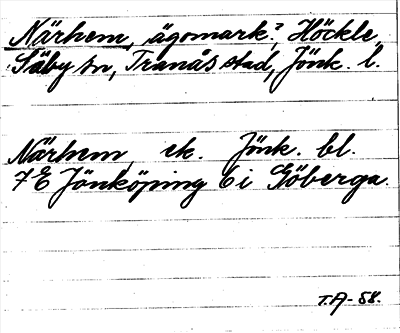 Närhem, ägomark? Höckle,
Säby sn, Tranås stad, Jönk. l.
Närhem ek. Jönk. bl.
7E Jönköping 6 i Göberga.
T.A-58.